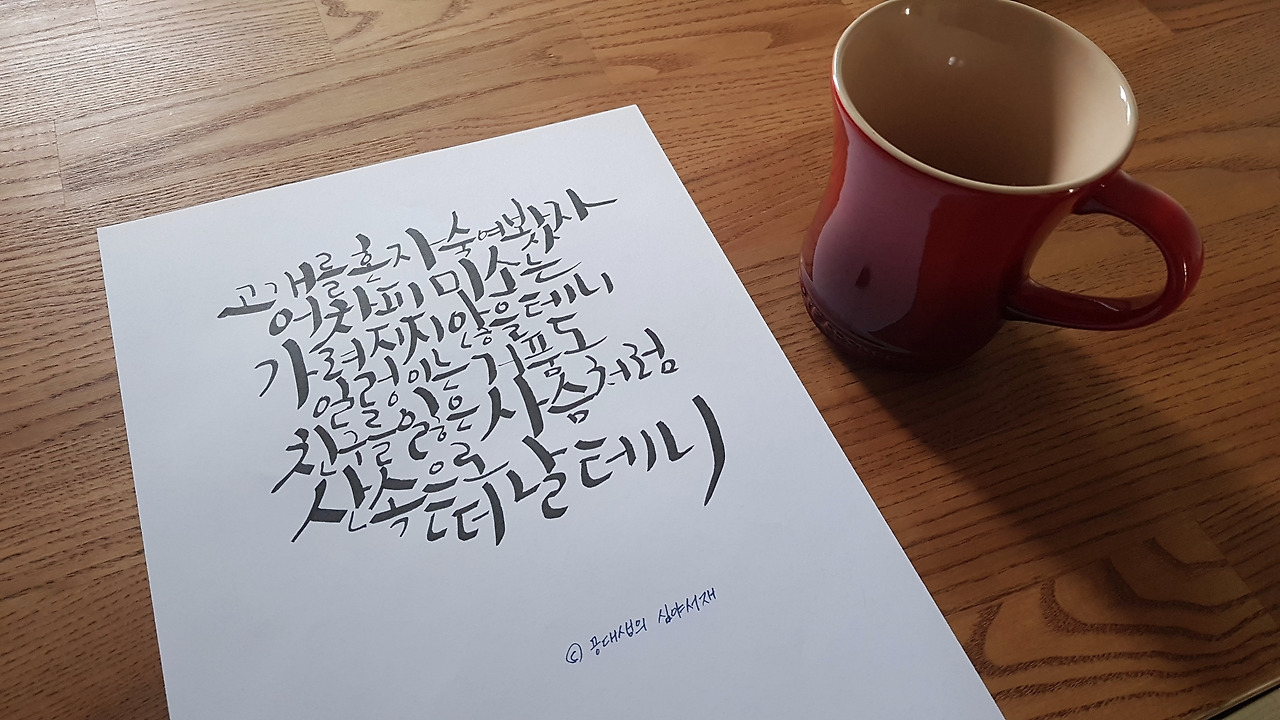 고개를 혼자 숙여봤자
어차피 미소는
가려지지 않을테니
얼렁이는 거품도
친구를 잃은 사슴처럼
산속으로 떠날테니
ⓒ 공대생의 심야서재